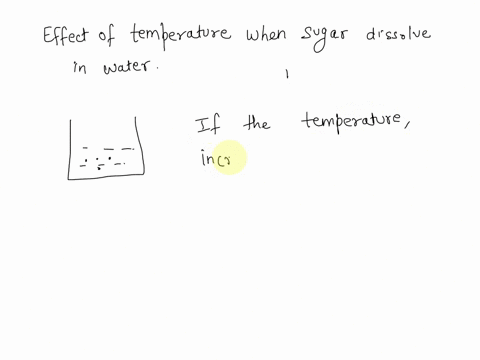 Effect of temperature when sugar dissolve
in water.
If the temperature,
incr